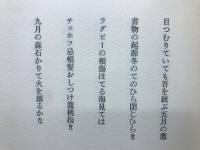 目つむりていても吾を統ぶ五月の鷹
書物の起源冬のてのひら閉じひらき
ラグビーの頬傷ほてる海見ては
チェホフ忌頬髭おしつけ籠桃抱き
九月の森石かりて火を創るかな